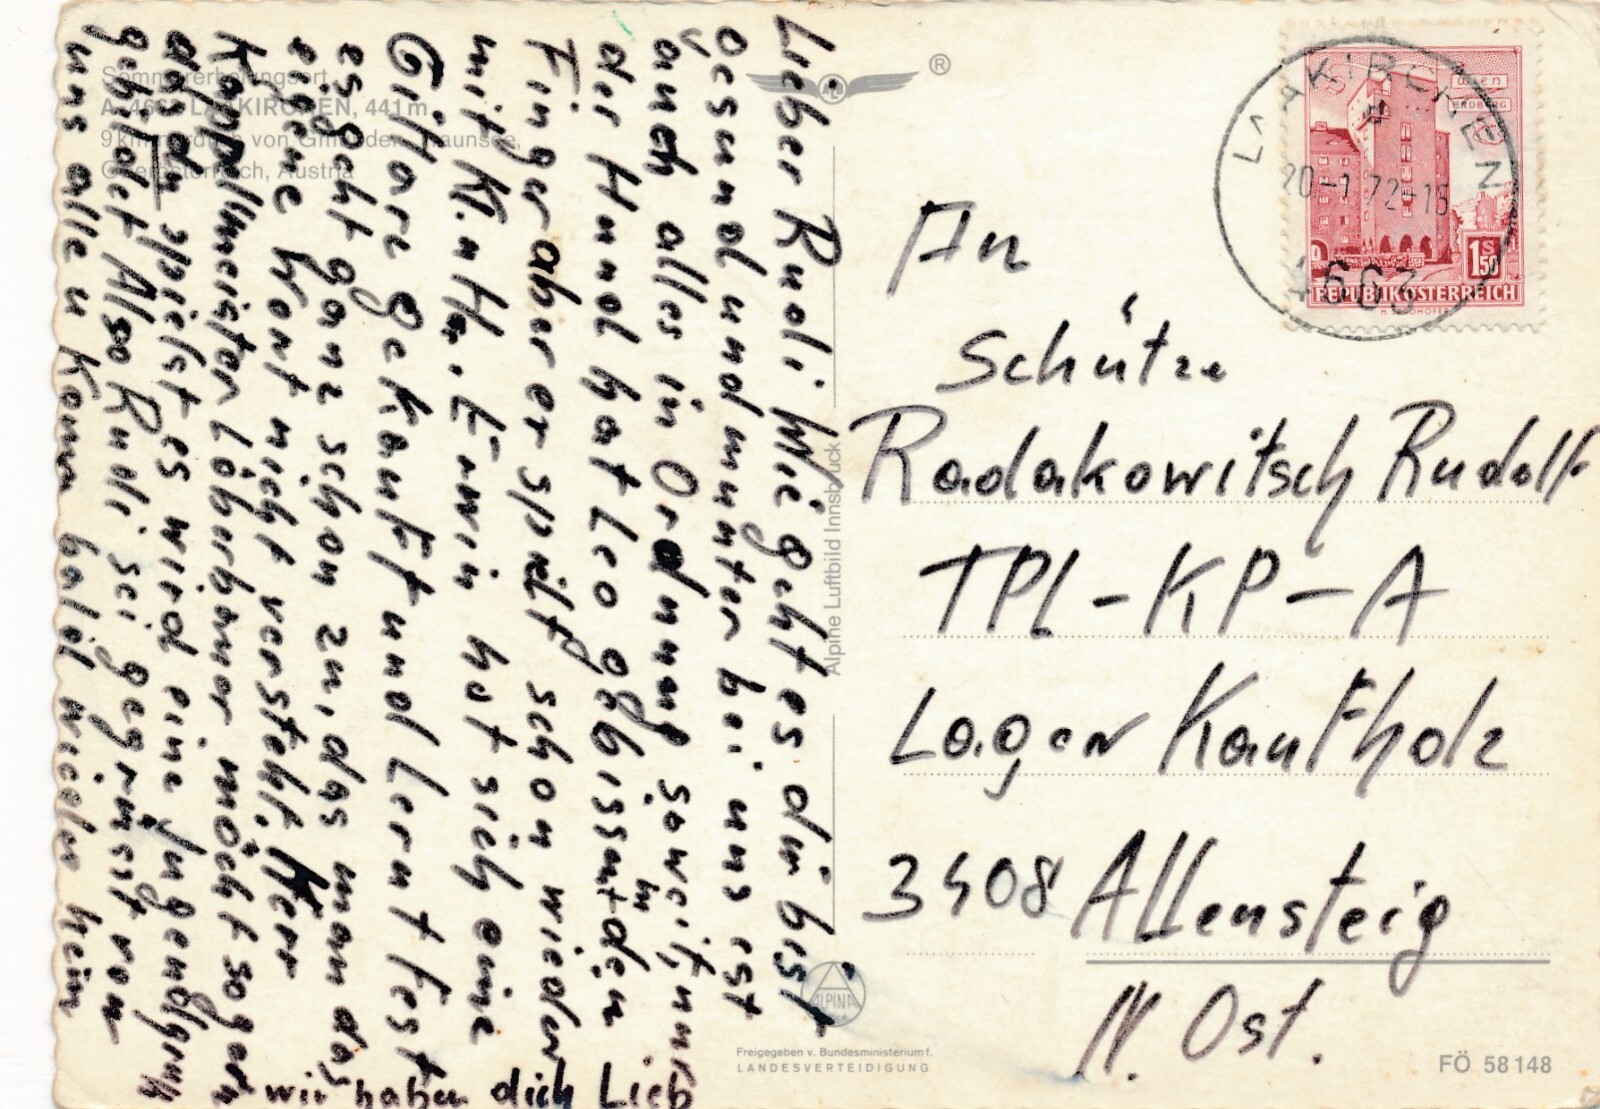 Lieber Rudi Wie geht es du bist
Gesund und munter bei uns ist
auch alles in Ordnung soweit, nur
der Hund hat Leo gebissen in den
Finger aber er spielt schon wieder
mit Klnttn. Erwin hat sich eine
Gittare gekauft und Lernt fest
es geht ganz schön zu, das man das
eigene Wort nicht versteht. Herr
Kappellmeister Löberbauer möcht sogar
das du spielst es wird eine Jugendgruppe
gebildet Also Rudi sei gegrüsst von
uns alle u Komm halöd wieder heim
wir haben dich Lieb
Sommererholungsort
A-4663 LAAKIRCHEN, 441 m
9 km nördlich von Gmunden, Traunsee,
Oberösterreich, Austria
ALPINE
®
Alpine Luftbild Innsbruck
ALPINA
Freigegeben v. Bundesministerium f.
LANDESVERTEIDIGUNG
LAAKIRCHEN
20-1 72-15
4663
WIEN
ERDBERG
1 S 50
REPUBLIK ÖSTERREICH
An
Schütze
Radakowitsch Rudolf
TPL-KP-A
Lager Kaufholz
3408 Allensteig
N. Öst.
FÖ 58 148